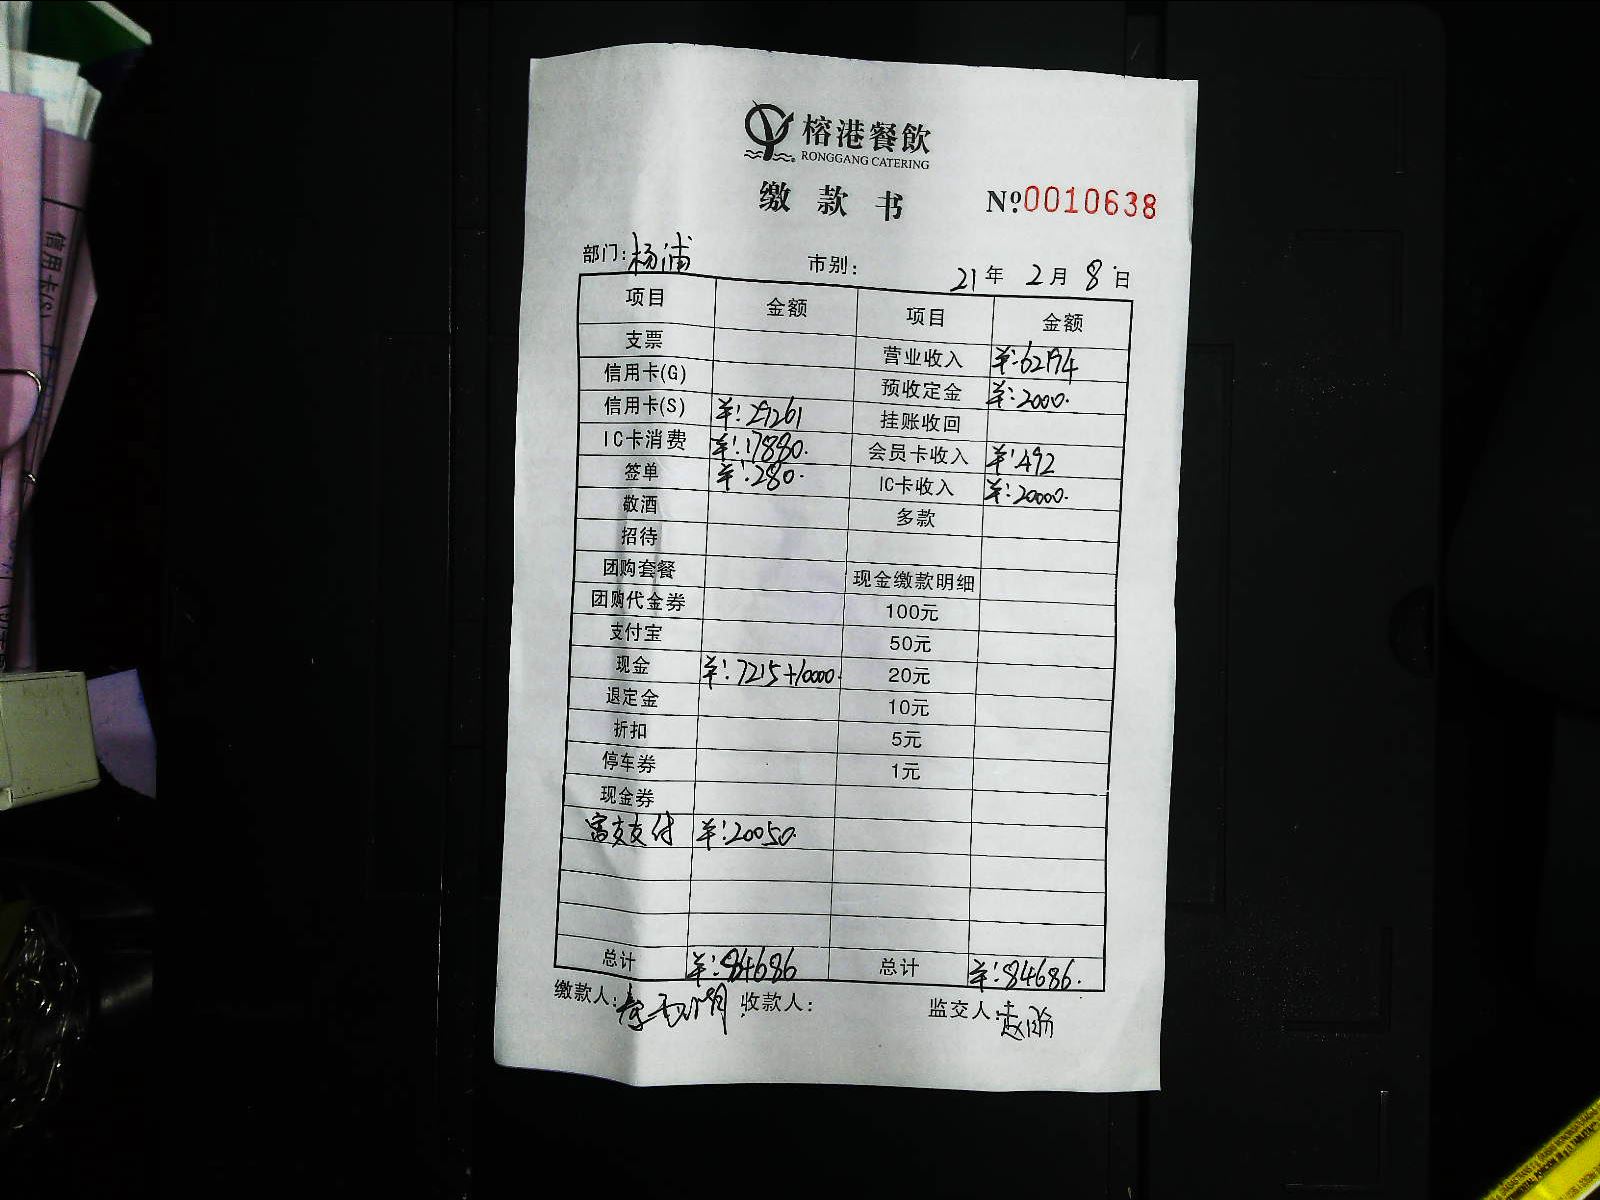 榕港餐飲
RONGGANG CATERING
缴款书 №0010638
部门:杨浦 市别: 21年 2月 8日
项目 金额 项目 金额
支票 营业收入 ¥:62194
信用卡(G) 预收定金 ¥:2000.
信用卡(S) ¥:29261 挂账收回
IC卡消费 ¥:17880. 会员卡收入 ¥:492
签单 ¥:280. IC卡收入 ¥:20000.
敬酒 多款
招待
团购套餐 现金缴款明细
团购代金券 100元
支付宝 50元
现金 ¥:7215+10000. 20元
退定金 10元
折扣 5元
停车券 1元
现金券
富友支付 ¥:20050.
总计 ¥:84686 总计 ¥:84686.
缴款人: 收款人: 监交人:
信用卡(S)